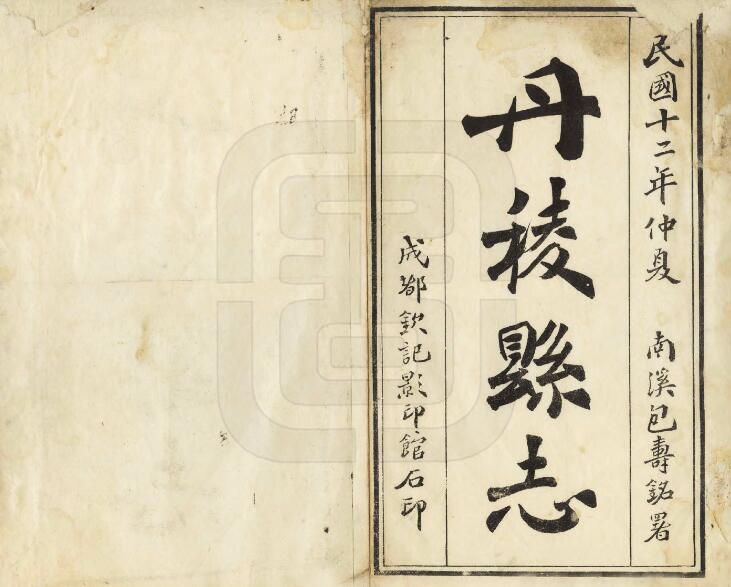 民國十二年仲夏 南溪包壽銘署
丹稜縣志
成都欽記影印館石印